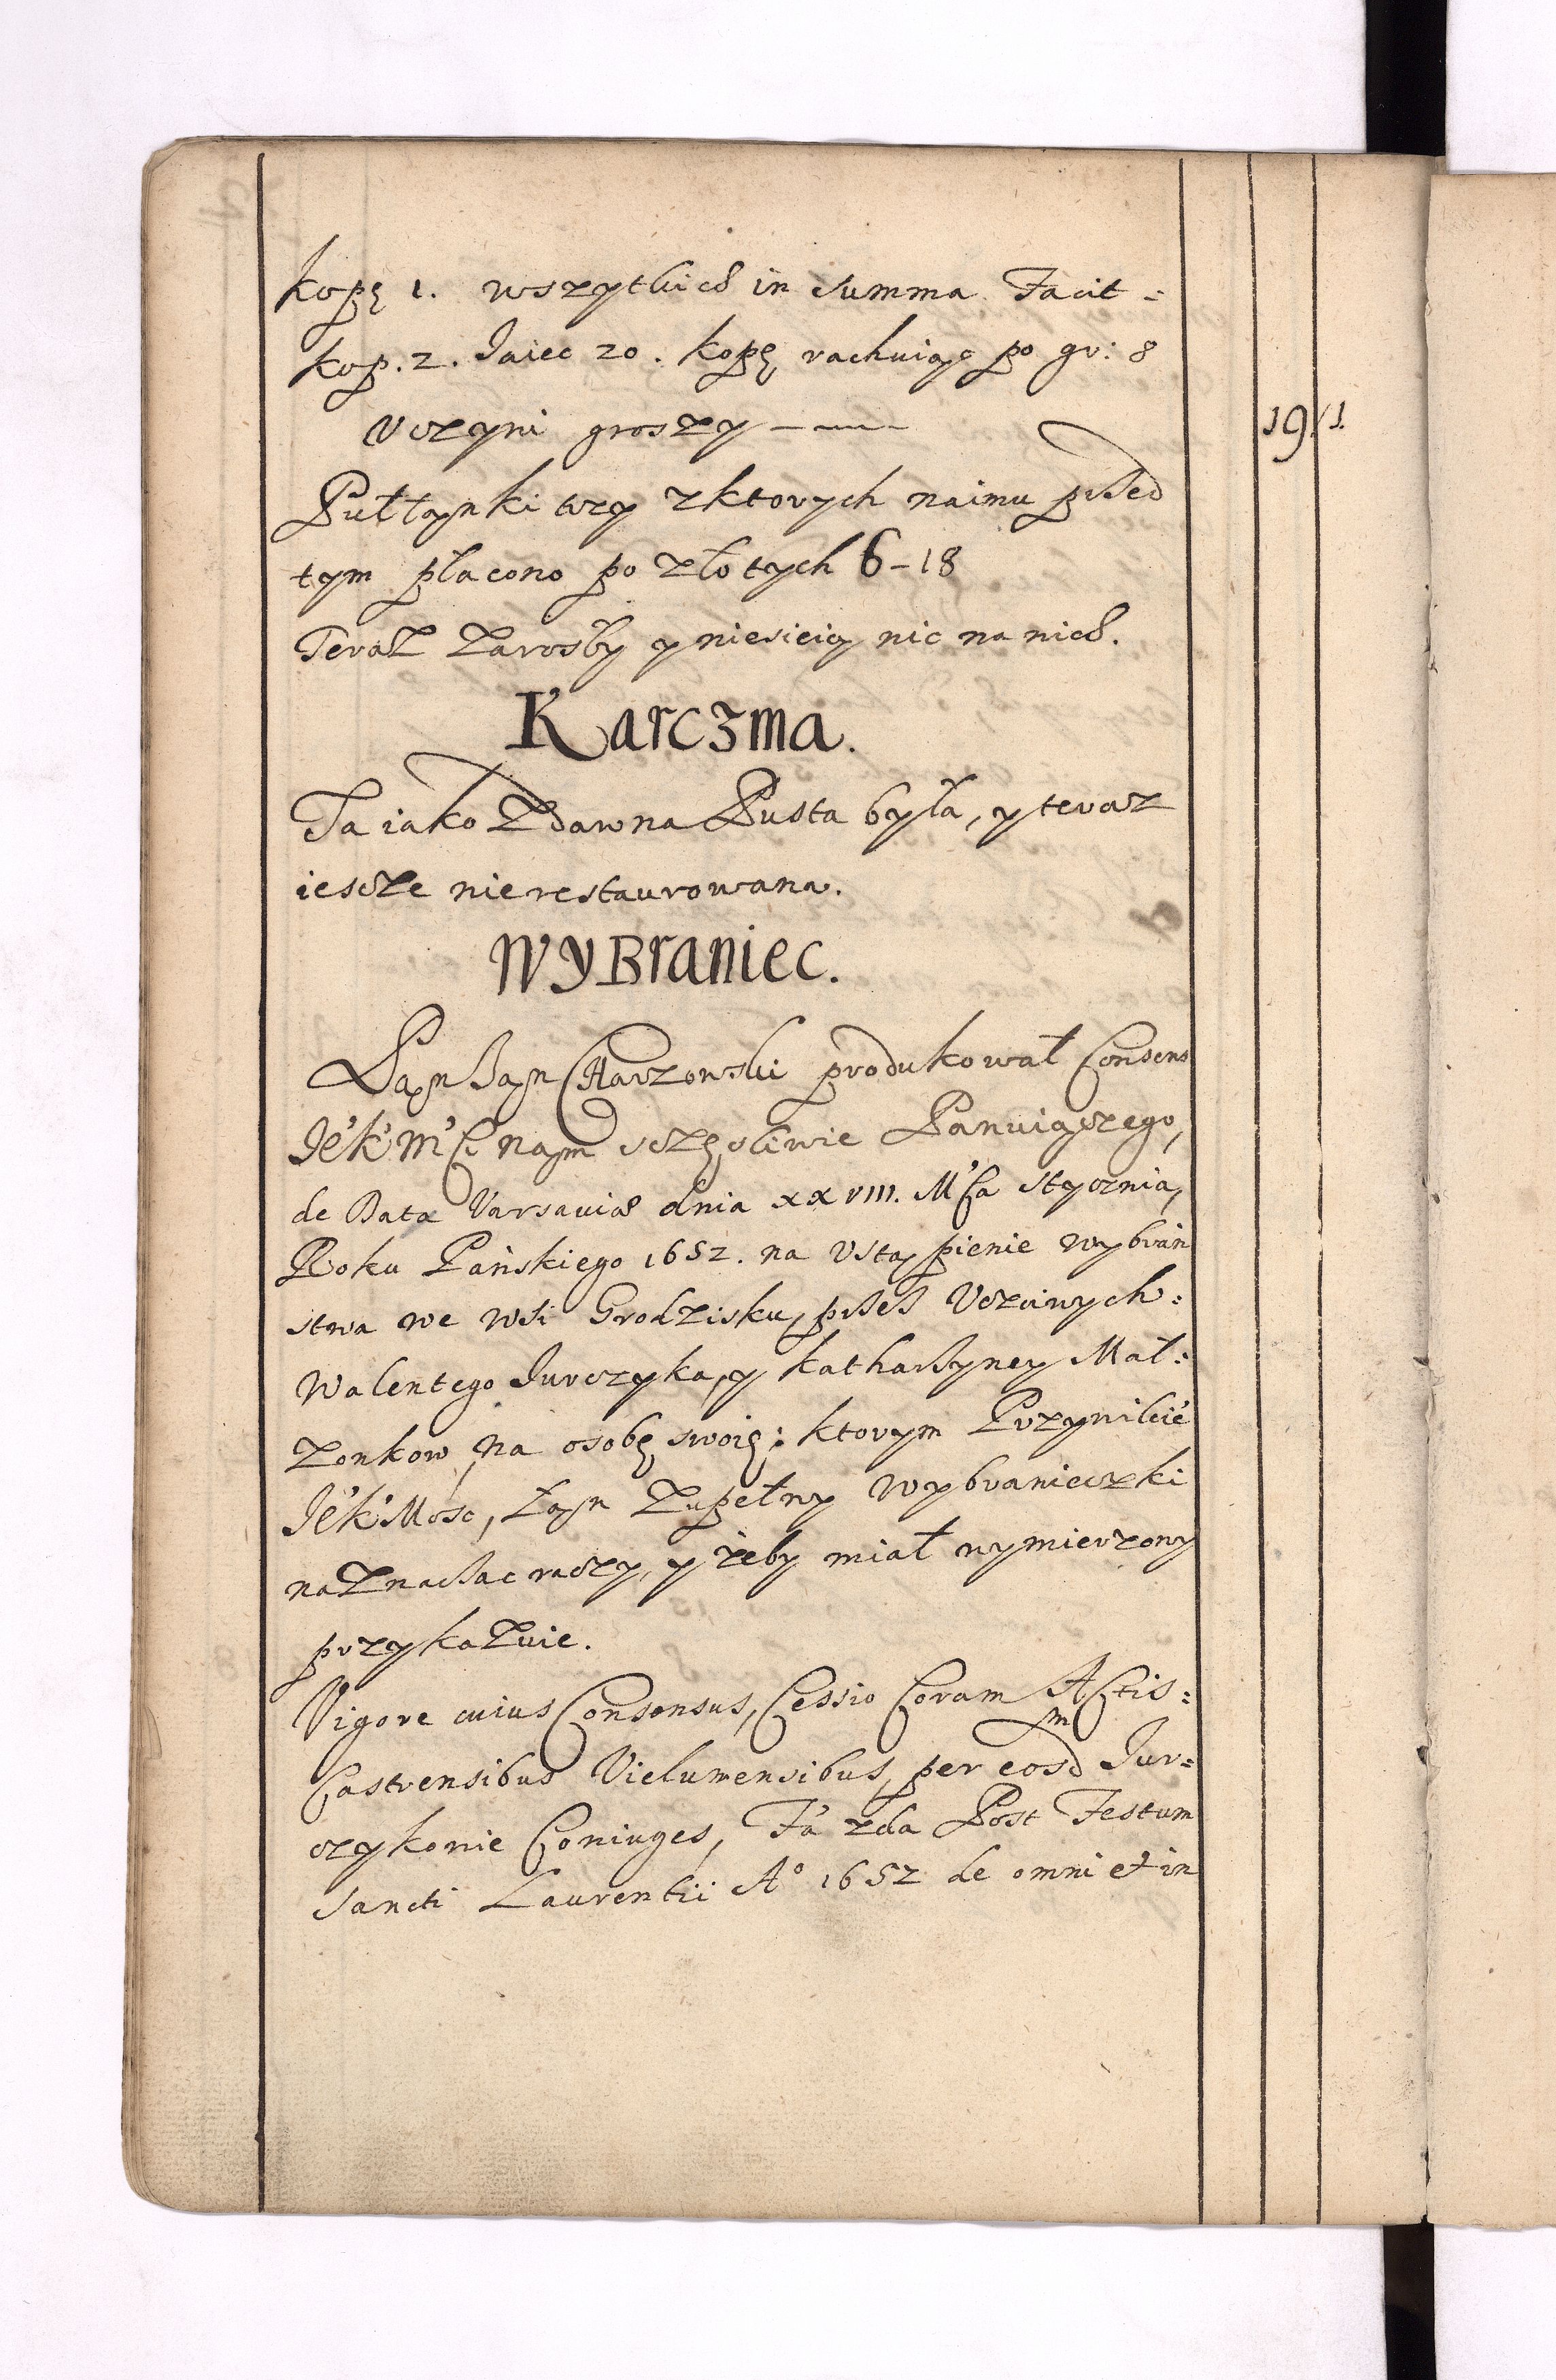 kopę 1. wszytkich in summa Facit =
kop. 2. Jaiec 20. kopę rachuiąc po gr: 8
Uczyni groszy — 19 / 1.
Pułłąnki trzy zktorych naimu przed
tym płacono po złotych 6-18
Teraz zarosły y niesieią nic na nich.
Karczma.
Ta iako zdawna Pusta była, y teraz
iescze nierestaurowana.
Wybraniec.
Pan Jan Charzowski produkował Consens
Jė'K'M'Ci nam sczęsliwie Panuiączego,
de Data Varsaviae dnia xxviii. M'ca stycznia,
Roku Pańskiego 1652. na Ustąpienie wybrań
stwa we wsi Grodzisku, przes Uczciwych =
Walentego Jurczyka, y Katharzyney Mał =
zonkow, na osobę swoię; ktorym Przywileie
Jė'K'Mosc, Łan Zupełny Wybranieczki
naznaczac raczy, y żeby miał wymierzony
przykazuie.
Vigore cuius Consensus, Cessio Coram Actis =
Castrensibus Vielumensibus, per eosdm Jur =
czykowie Coniuges, F'a 2da Post Festum
Sancti Laurentii Aº 1652 de omni et in